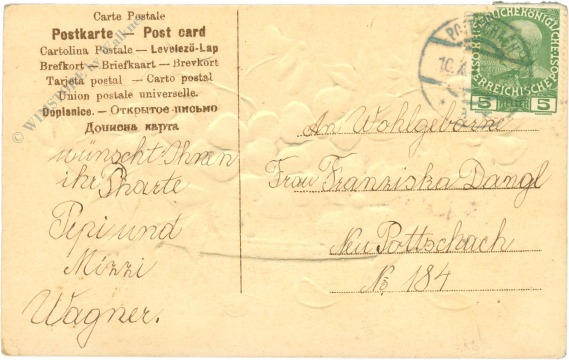 Carte Postale
Postkarte — Post card
Cartolina Postale — Levelező-Lap
Brefkort — Briefkaart — Brevkort
Tarjeta postal — Carto postal
Union postale universelle.
Dopisnice. — Открытое письмо
Дописна карта
wünscht Ihnen
ihr Pharte
Pepi und
Mizzi
Wagner.
5 5
An Wohlgeborne
Frau Franziska Dangl
Neu Pottschach
No 184